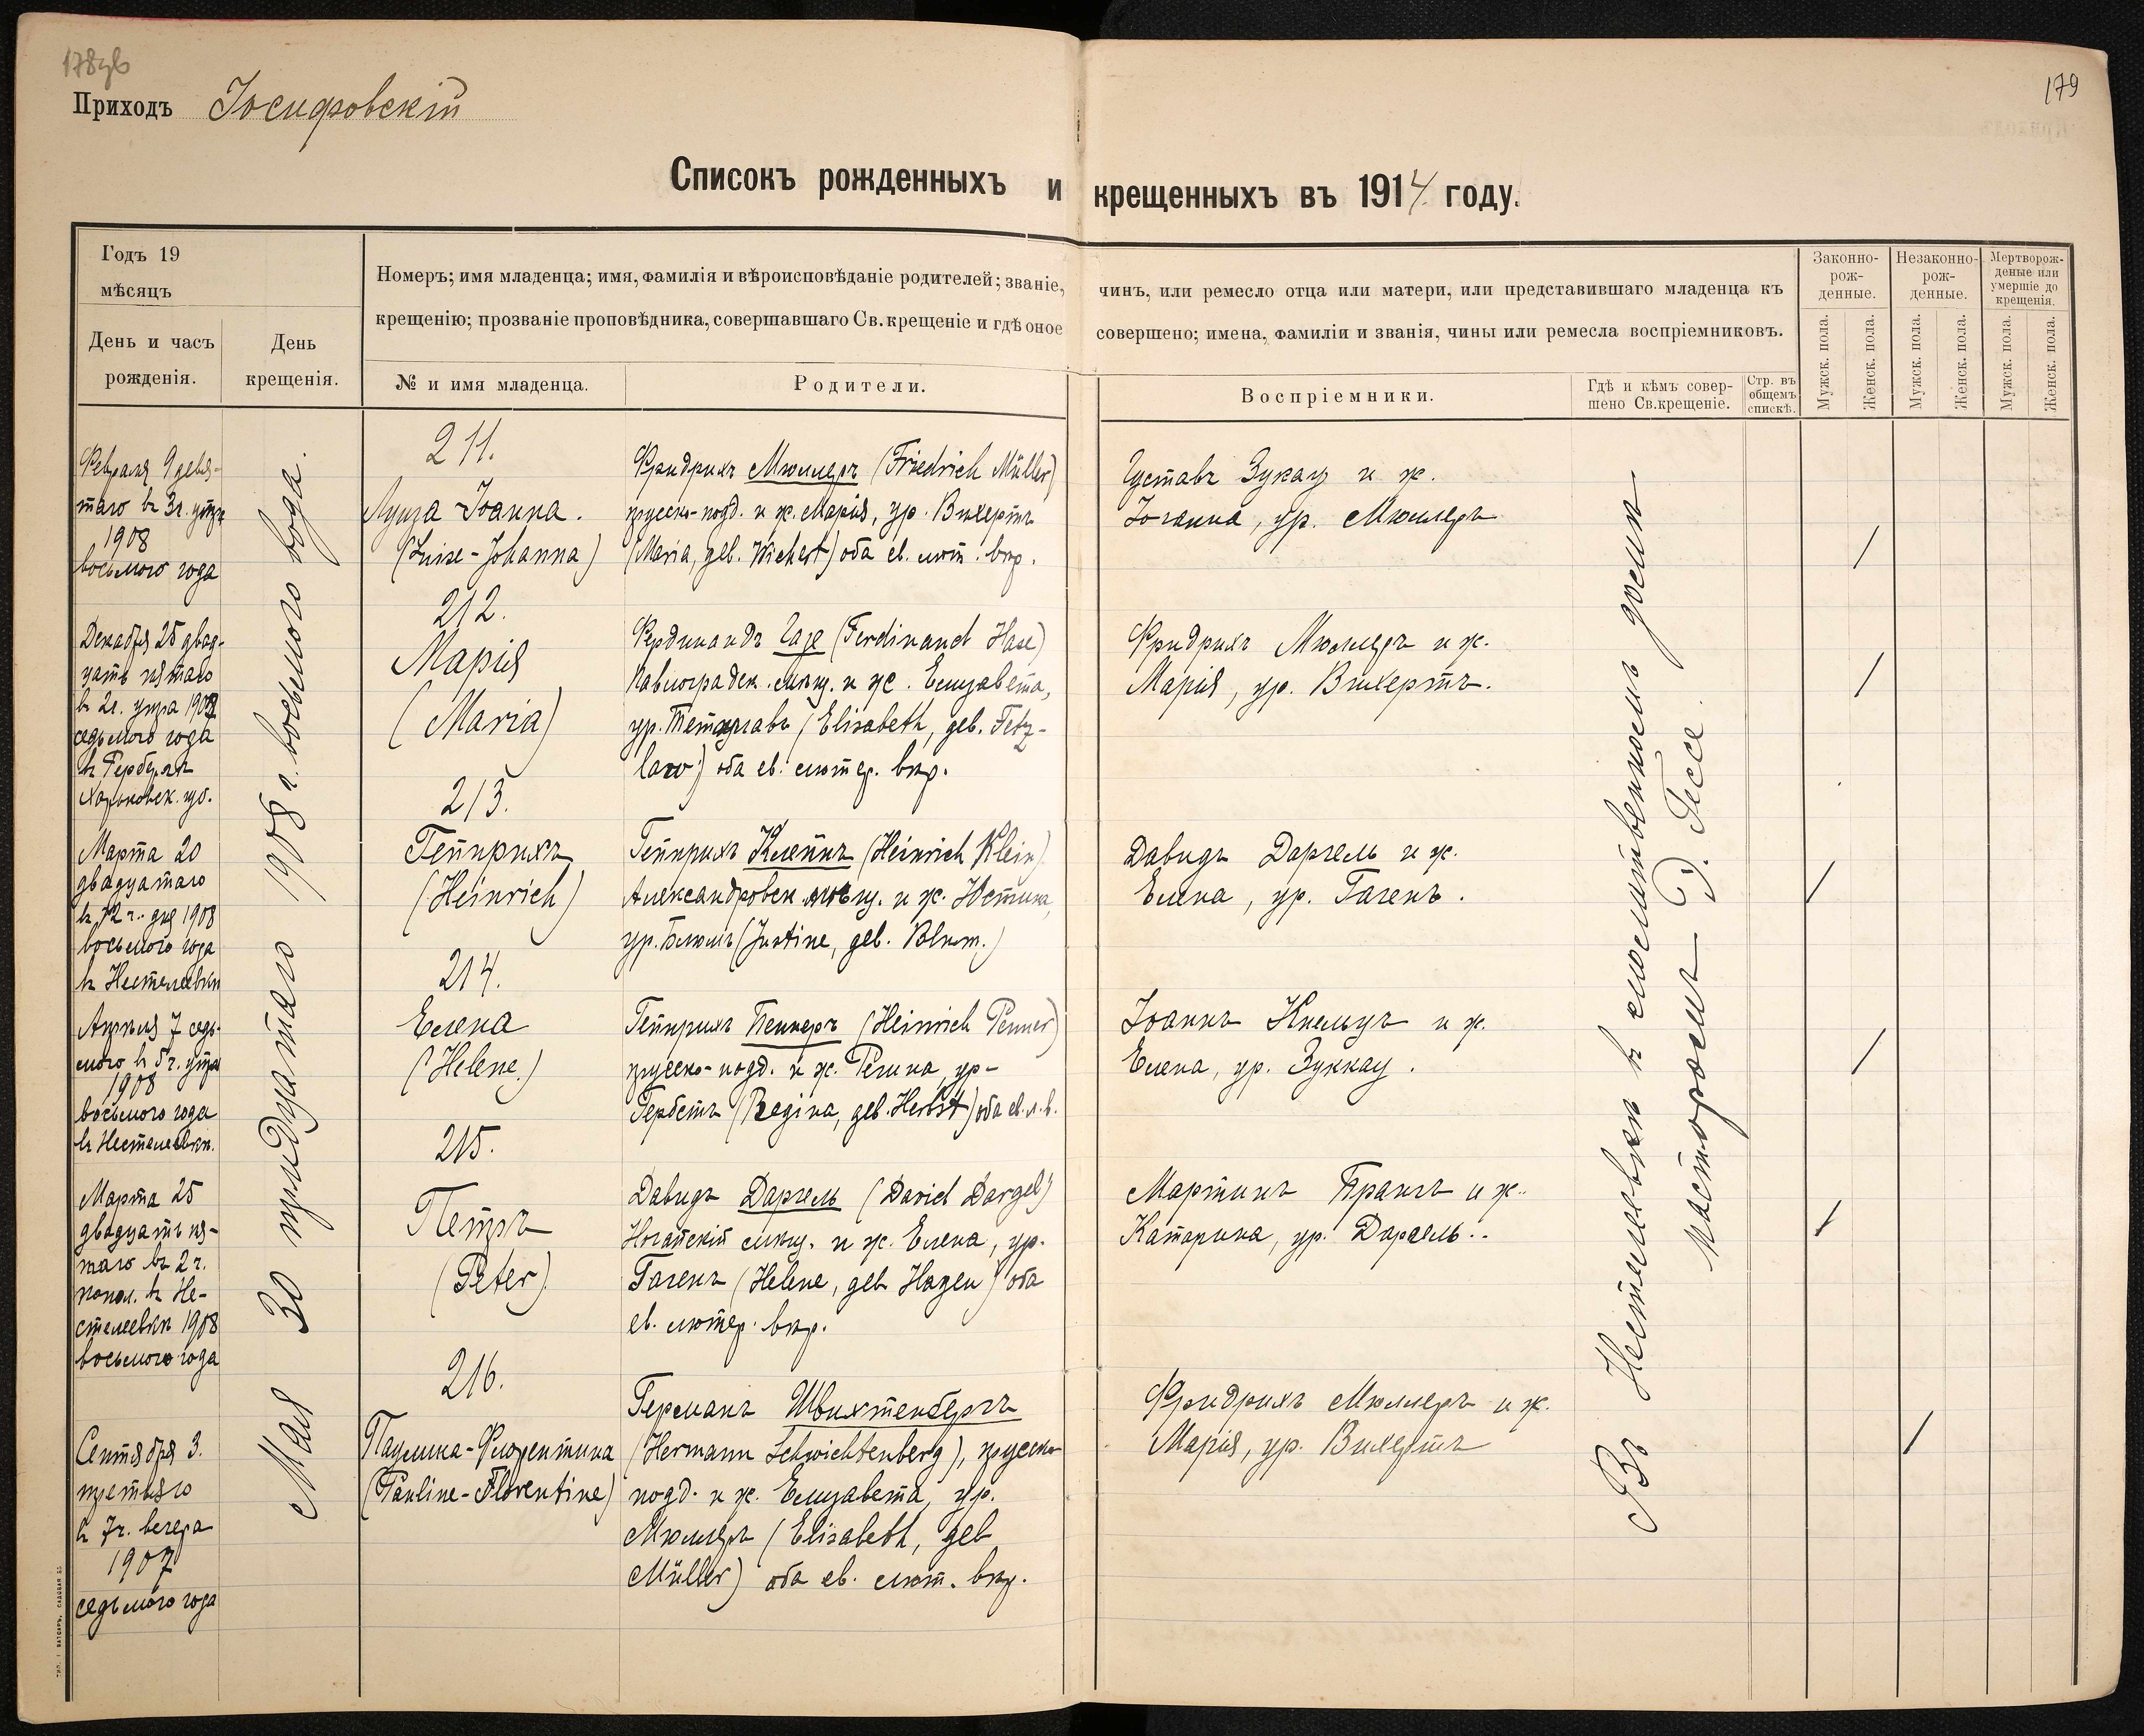 178 об
179
Приходъ Іосифовскій
Списокъ рожденныхъ и крещенныхъ въ 1914 году.
Годъ 19
мѣсяцъ
День и часъ
рожденія.
День
крещенія.
Номеръ; имя младенца; имя, фамилія и вѣроисповѣданіе родителей; званіе,
крещенію; прозваніе проповѣдника, совершавшаго Св. крещеніе и гдѣ оное
№ и имя младенца.
Родители.
чинъ, или ремесло отца или матери, или представившаго младенца къ
совершено; имена, фамиліи и званія, чины или ремесла воспріемниковъ.
Воспріемники.
Гдѣ и кѣмъ совер-
шено Св.крещеніе.
Стр. въ
общемъ
спискѣ.
Законно-
рож-
денные.
Незаконно-
рож-
денные.
Мертворож-
денные или
умершіе до
крещенія.
Мужск. пола.
Женск. пола.
Мужск. пола.
Женск. пола.
Мужск. пола.
Женск. пола.
Февраля 9 девя-
таго въ 3 г. утра
1908
восьмого года
Мая 30 тридцатаго 1908 г. восьмого года.
211.
Луиза-Іоанна.
(Luise-Johanna)
Фридрихъ Мюллеръ (Friedrich Müller)
прусско-подд. и ж. Марія, ур. Вихертъ
(Maria, geb. Wichert) оба ев. лют. вѣр.
Густавъ Зукау и ж.
Іоганна, ур. Мюллеръ
Въ Нестелеевкѣ въ молитвенномъ домѣ
пасторомъ Э. Гессе.
Декабря 25 двад-
цать пятаго
въ 2 г. утра 1907
седьмого года
Харьковск. губ.
212.
Марія
(Maria)
Фердинандъ Газе (Ferdinand Hase)
Павлоградск. мѣщ. и ж. Елизавета,
ур. Тетцлавъ (Elisabeth, geb. Tetz-
law) оба ев. лютер. вѣр.
Фридрихъ Мюллеръ и ж.
Марія, ур. Вихертъ.
Марта 20
двадцатаго
въ 12 г. дня 1908
восьмого года
въ Нестелеевкѣ
213.
Гейнрихъ
(Heinrich)
Гейнрихъ Клейнъ (Heinrich Klein)
Александровск. мѣщ. и ж. Юстина,
ур. Блюмъ (Justine, geb. Blum.)
Давидъ Даргель и ж.
Елена, ур. Гагенъ.
Апрѣля 7 седь-
мого въ 5 г. утра
1908
восьмого года
въ Нестелеевкѣ.
214.
Елена
(Helene.)
Гейнрихъ Пеннеръ (Heinrich Penner)
прусско-подд. и ж. Регина, ур-
Гербстъ (Regina, geb. Herbst) оба ев. л. в.
Іоаннъ Кнельцъ и ж.
Елена, ур. Зуккау.
Марта 25
двадцать пя-
таго въ 2 г.
попол. въ Не-
стелеевкѣ 1908
восьмого года
215.
Петръ
(Peter).
Давидъ Даргель (David Dargel)
Ногайскій мѣщ. и ж. Елена, ур.
Гагенъ (Helene, geb Hagen) оба
ев. лютер. вѣр.
Мартинъ Прангъ и ж.
Катарина, ур. Даргель.
Сентября 3.
третьяго
въ 7 г. вечера
1907
седьмого года
216.
Паулина-Флорентина
(Pauline-Florentine)
Германъ Швихтенбергъ
(Hermann Schwichtenberg), прусско-
подд. и ж. Елизавета, ур.
Мюллеръ (Elisabeth, geb
Müller) оба ев. лют. вѣр.
Фридрихъ Мюллеръ и ж.
Марія, ур. Вихертъ